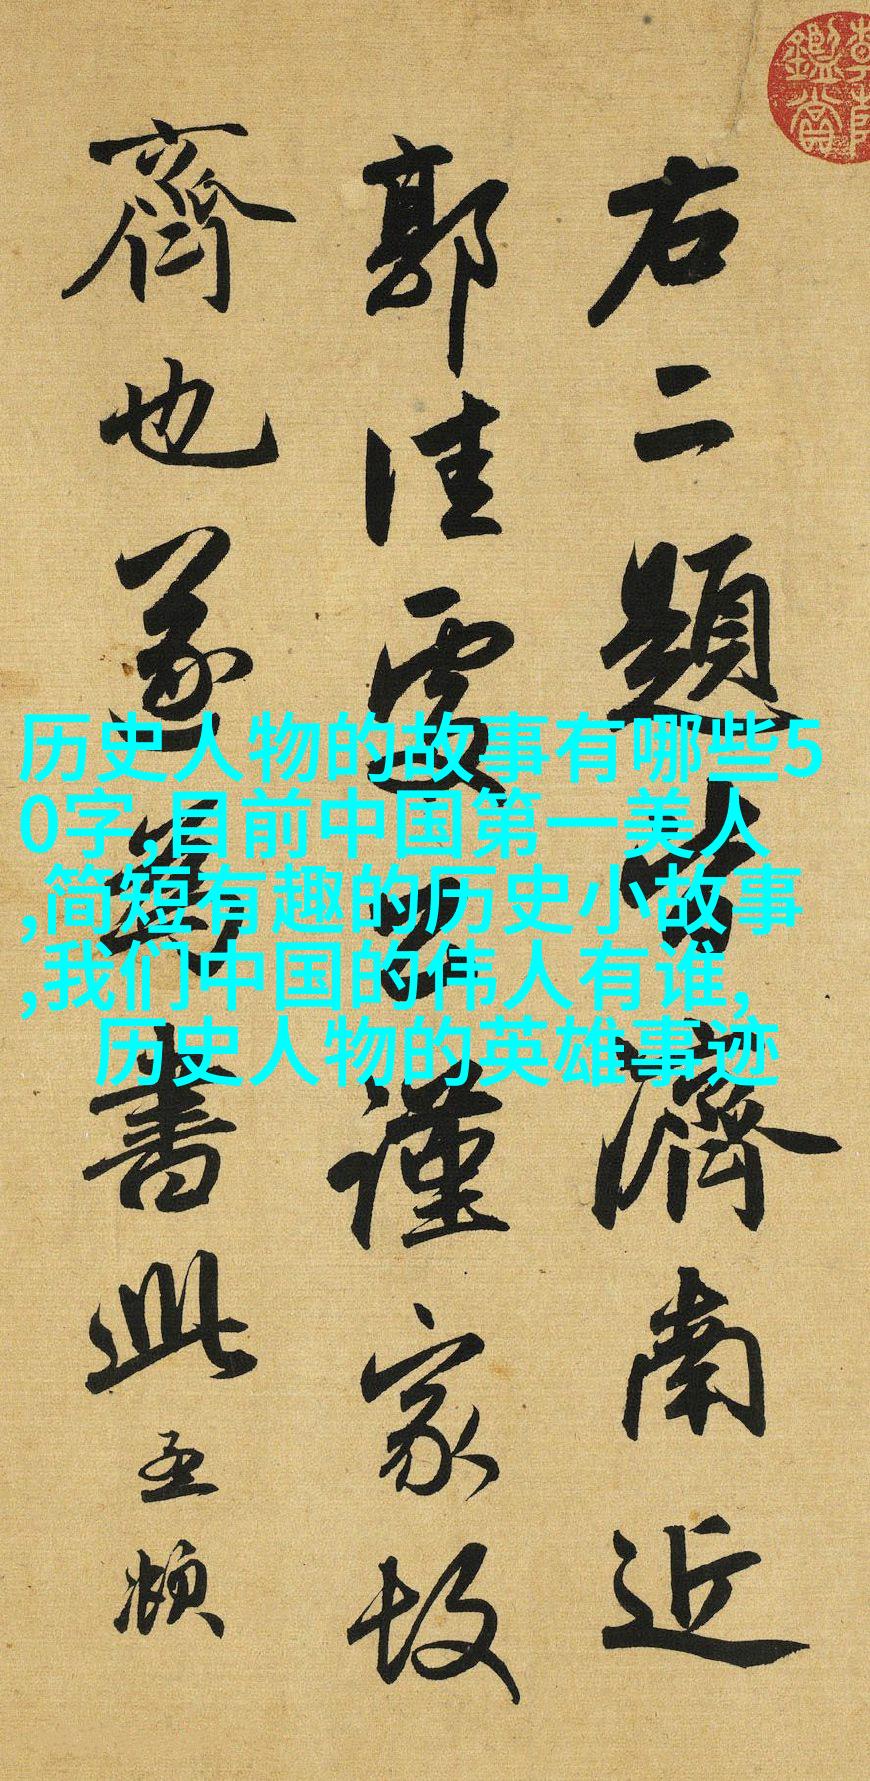 鑑賞
右二題皆濟南近
郭佳處公謹家故
齊也遂為書此孟頫
历史人物的故事有哪些5
0字,目前中国第一美人
,简短有趣的历史小故事
,我们中国的伟人有谁,
历史人物的英雄事迹